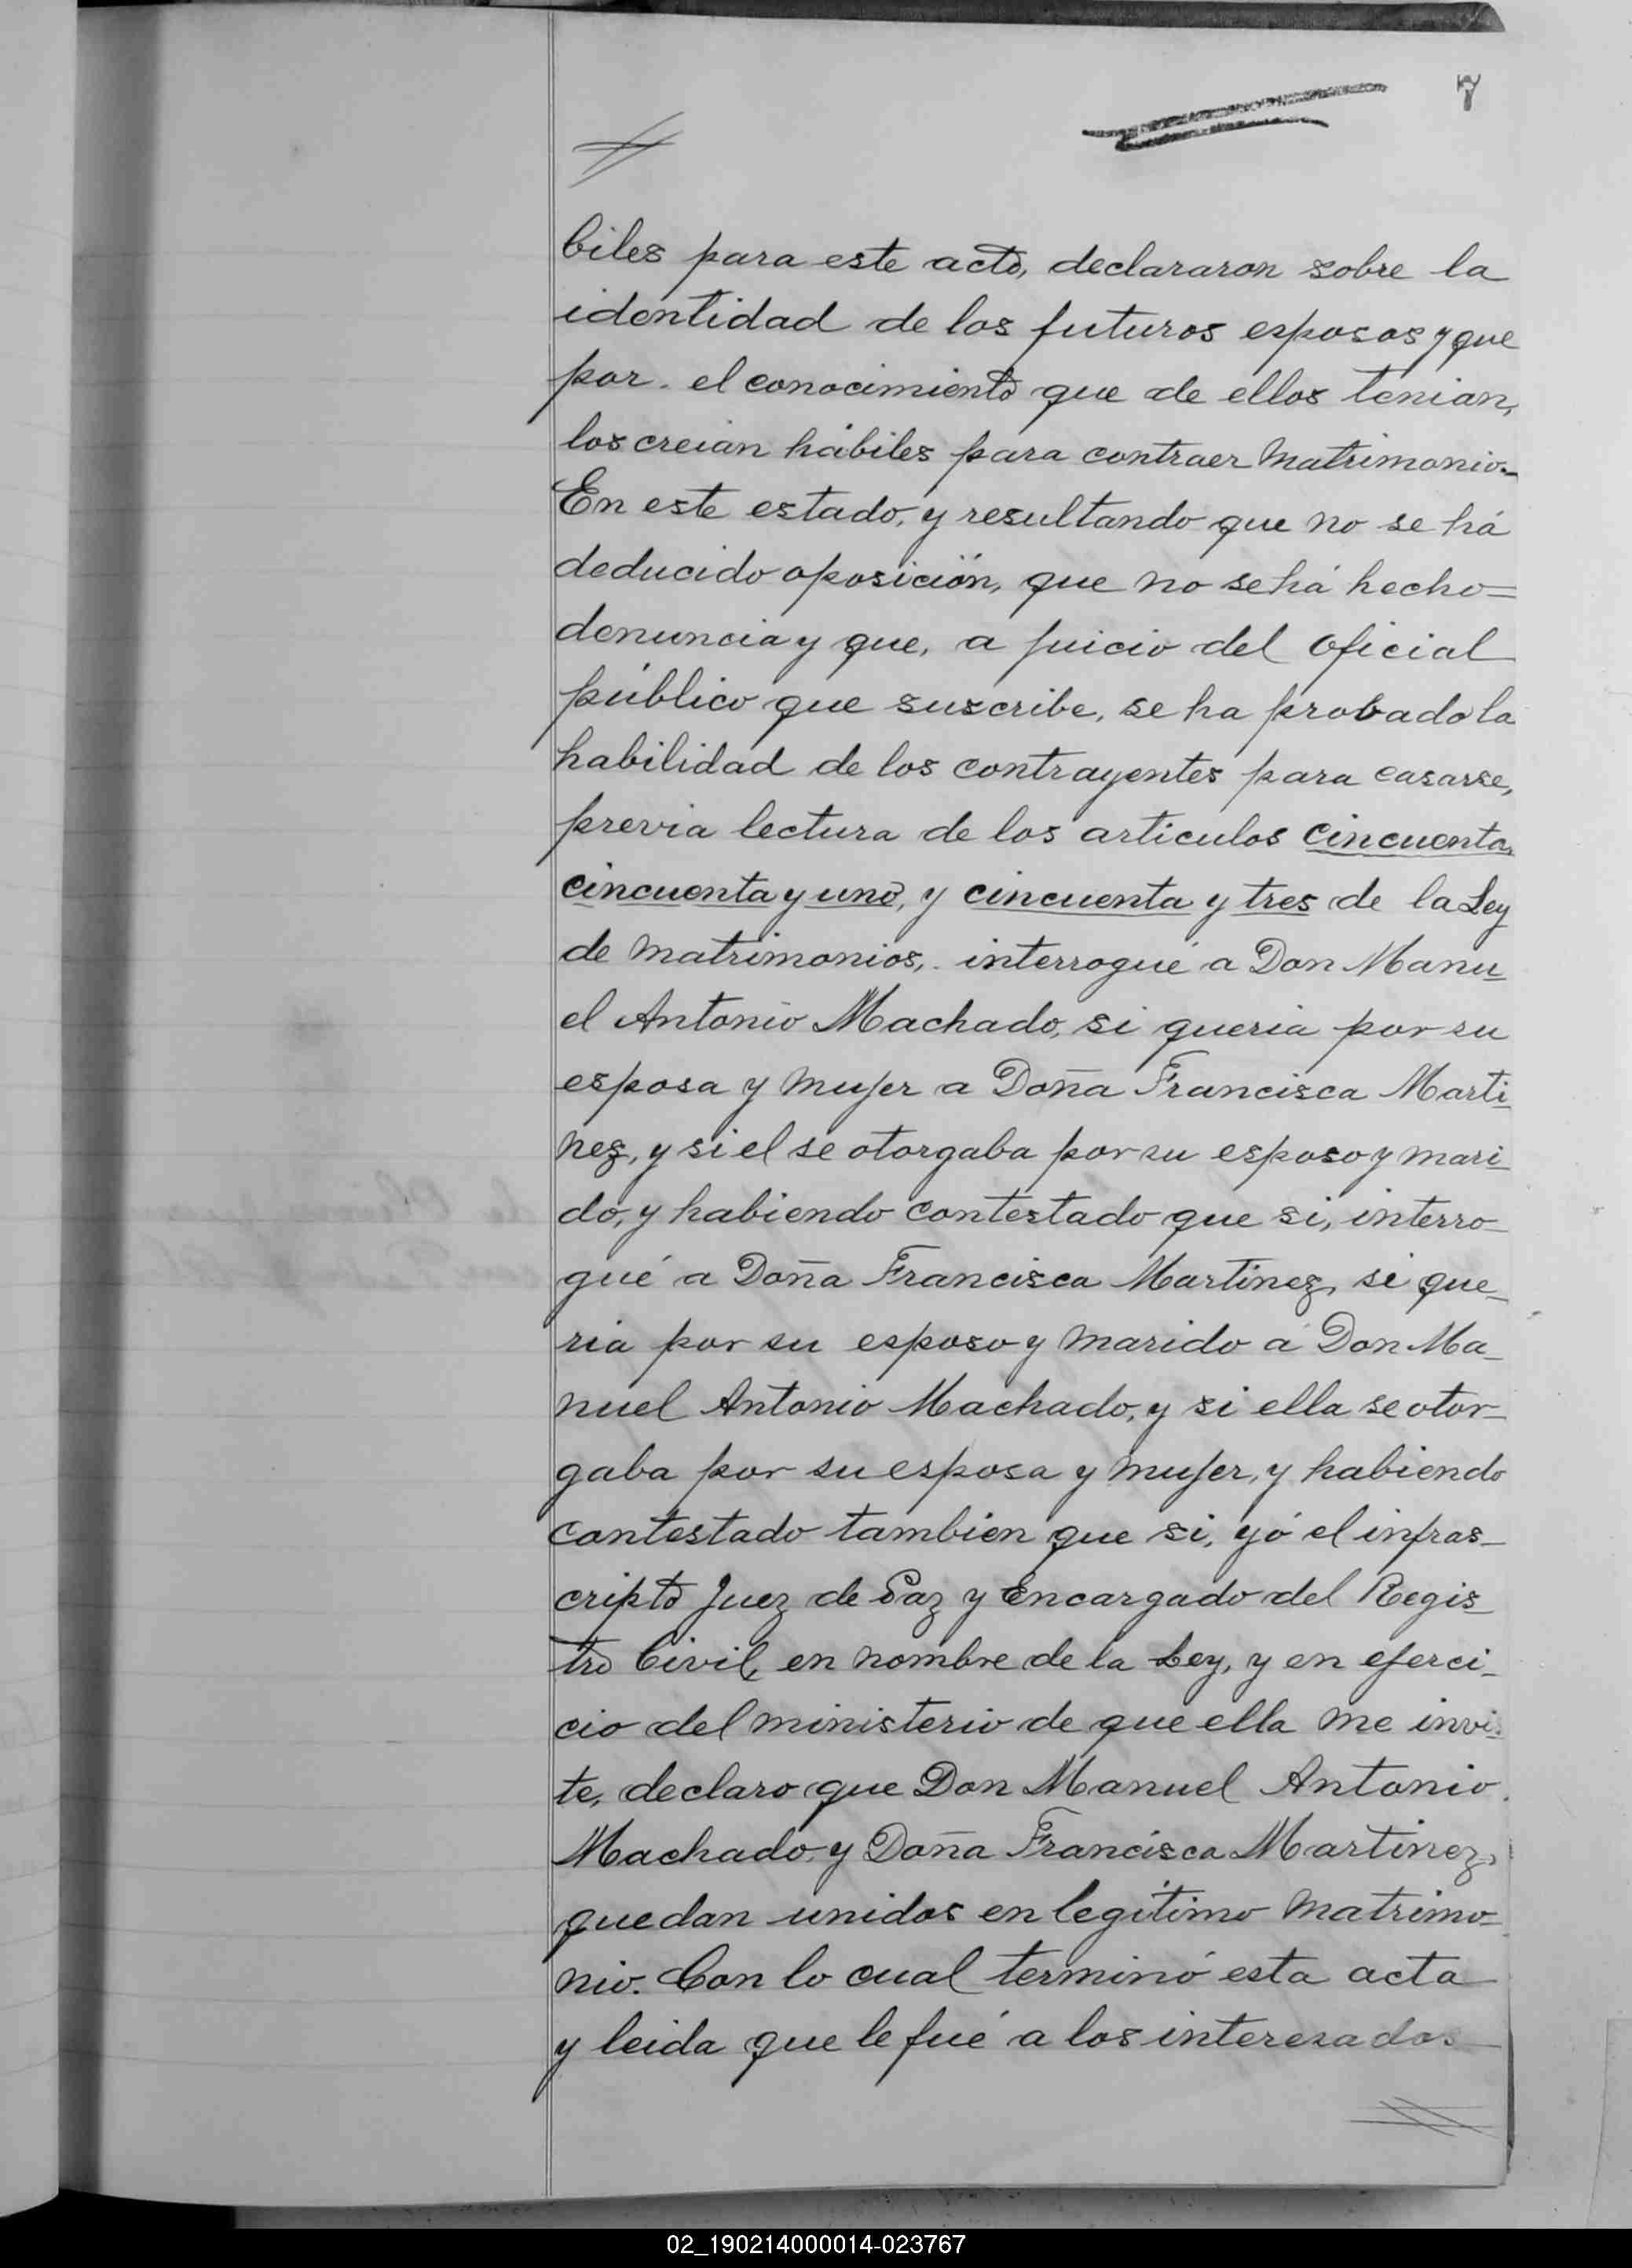 7
biles para este acto, declararon sobre la
identidad de los futuros esposos y que
por. el conocimiento que de ellos tenian,
los creian hábiles para contraer matrimonio.-
En este estado, y resultando que no se há
deducido oposición, que no se há hecho=
denuncia y que, a juicio del oficial
público que suscribe, se ha probado la
habilidad de los contrayentes para casarse,
previa lectura de los articulos cincuenta,
cincuenta y uno, y cincuenta y tres de la Ley
de matrimonios, interrogué a Don Manu_
el Antonio Machado, si queria por su
esposa y mujer a Doña Francisca Marti_
nez, y si el se otorgaba por su esposo y mari_
do, y habiendo contestado que si, interro_
gué a Doña Francisca Martinez, si que_
ria por su esposo y marido á Don Ma_
nuel Antonio Machado, y si ella se otor_
gaba por su esposa y mujer, y habiendo
contestado tambien que si, yó el infras_
cripto Juez de Paz y Encargado del Regis_
tro Civil, en nombre de la Ley, y en ejerci_
cio del ministerio de que ella me invis_
te, declaro que Don Manuel Antonio
Machado y Doña Francisca Martinez,
quedan unidos en legítimo matrimo_
nio. Con lo cual terminó esta acta
y leida que le fué a los interesados
02_190214000014-023767